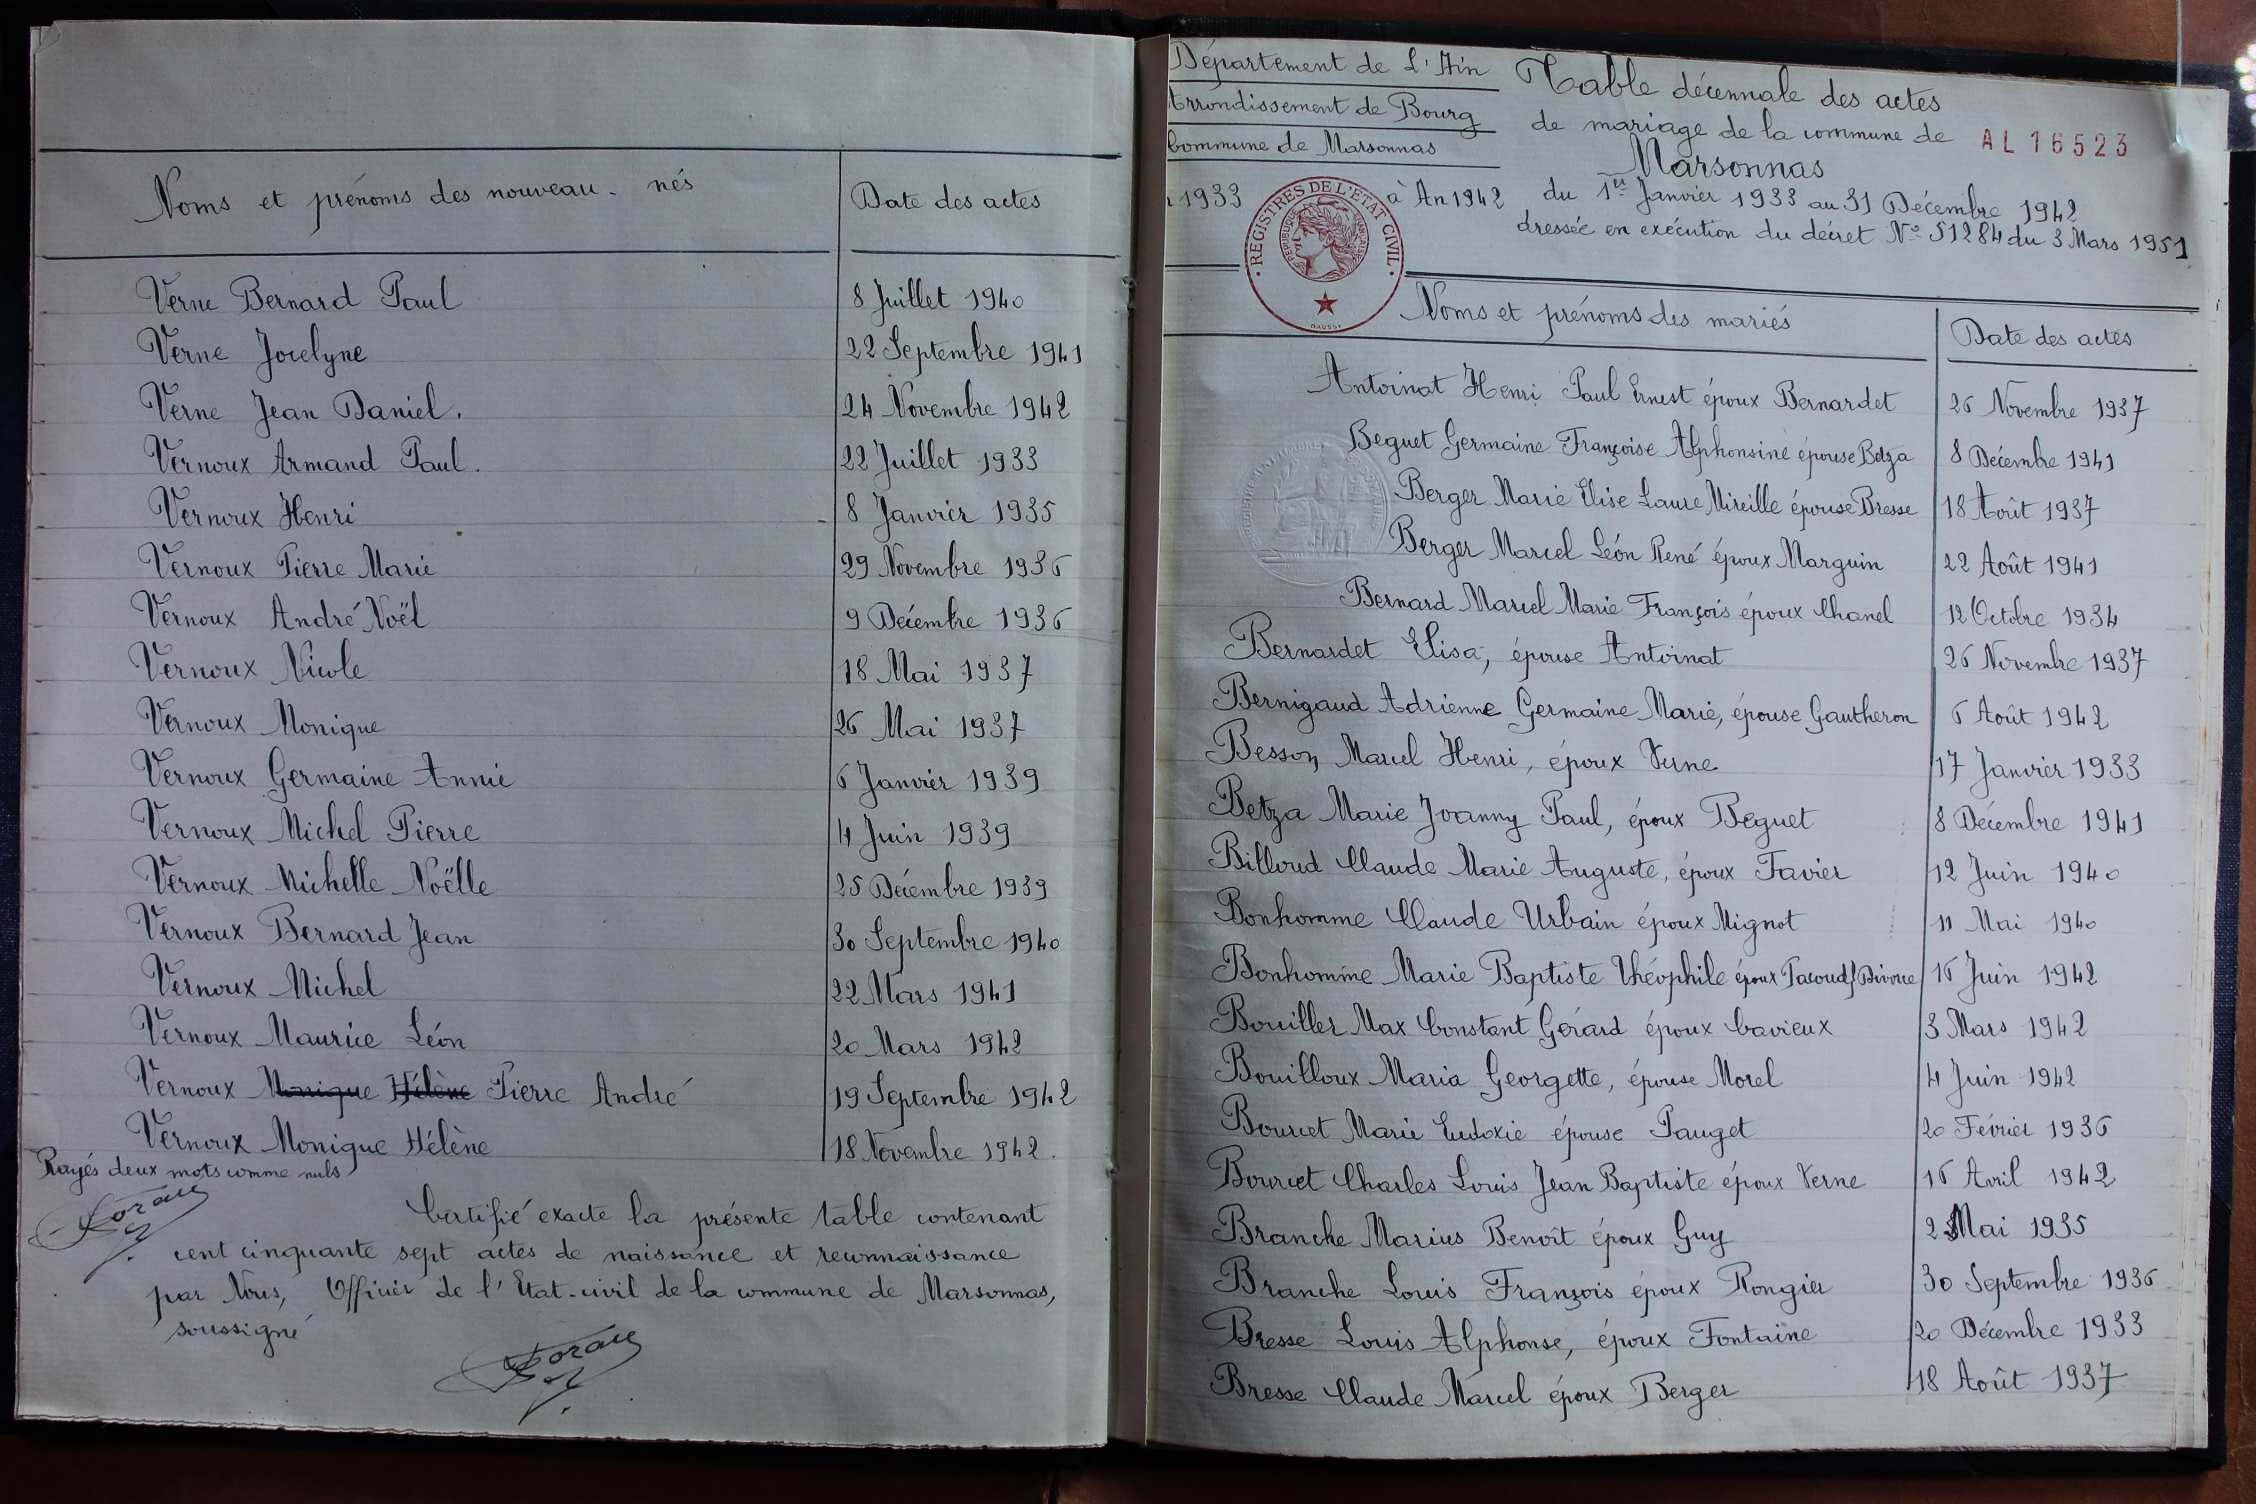 Noms et prénoms des nouveau-nés
Date des actes
Verne Bernard Paul 8 Juillet 1940
Verne Jocelyne 22 Septembre 1941
Verne Jean Daniel. 24 Novembre 1942
Vernoux Armand Paul. 22 Juillet 1933
Vernoux Henri 8 Janvier 1935
Vernoux Pierre Marie 29 Novembre 1936
Vernoux André Noël 9 Décembre 1936
Vernoux Nicole 18 Mai 1937
Vernoux Monique 26 Mai 1937
Vernoux Germaine Annie 6 Janvier 1939
Vernoux Michel Pierre 4 Juin 1939
Vernoux Michelle Noëlle 25 Décembre 1939
Vernoux Bernard Jean 30 Septembre 1940
Vernoux Michel 22 Mars 1941
Vernoux Maurice Léon 20 Mars 1942
Vernoux Monique Hélène Pierre André 19 Septembre 1942
Vernoux Monique Hélène 18 Novembre 1942.
Rayés deux mots comme nuls
Certifié exacte la présente table contenant
cent cinquante sept actes de naissance et reconnaissance
par Nous, Officier de l'Etat-civil de la commune de Marsonnas,
soussigné
Département de L'Ain
Arrondissement de Bourg
Commune de Marsonnas
1933 à An 1942
Table décennale des actes
de mariage de la commune de
AL 16523
Marsonnas
du 1er Janvier 1933 au 31 Décembre 1942
dressée en exécution du décret No 51284 du 3 Mars 1951
REGISTRES DE L'ETAT CIVIL
Noms et prénoms des mariés
Date des actes
Antoinat Henri Paul Ernest époux Bernardet 26 Novembre 1937
Beguet Germaine Françoise Alphonsine épouse Betza 8 Décembre 1941
Berger Marie Elise Laure Mireille épouse Bresse 18 Août 1937
Berger Marcel Léon René époux Marguin 22 Août 1941
Bernard Marcel Marie François époux Chanel 12 Octobre 1934
Bernardet Elisa, épouse Antoinat 26 Novembre 1937
Bernigaud Adrienne Germaine Marie, épouse Gautheron 6 Août 1942
Besson Marcel Henri, époux Verne 17 Janvier 1933
Betza Marie Joanny Paul, époux Beguet 8 Décembre 1941
Billoud Claude Marie Auguste, époux Favier 12 Juin 1940
Bonhomme Claude Urbain époux Mignot 11 Mai 1940
Bonhomme Marie Baptiste Théophile époux Pacoud/Divorce 16 Juin 1942
Bouiller Max Constant Gérard époux Cavieux 3 Mars 1942
Bouilloux Maria Georgette, épouse Morel 4 Juin 1942
Bourcet Marie Eudoxie épouse Pauget 20 Février 1936
Bourcet Charles Louis Jean Baptiste époux Verne 16 Avril 1942
Branche Marius Benoît époux Guy Mai 1935
Branche Louis François époux Rongier 30 Septembre 1936
Bresse Louis Alphonse, époux Fontaine 20 Décembre 1933
Bresse Claude Marcel époux Berger 18 Août 1937